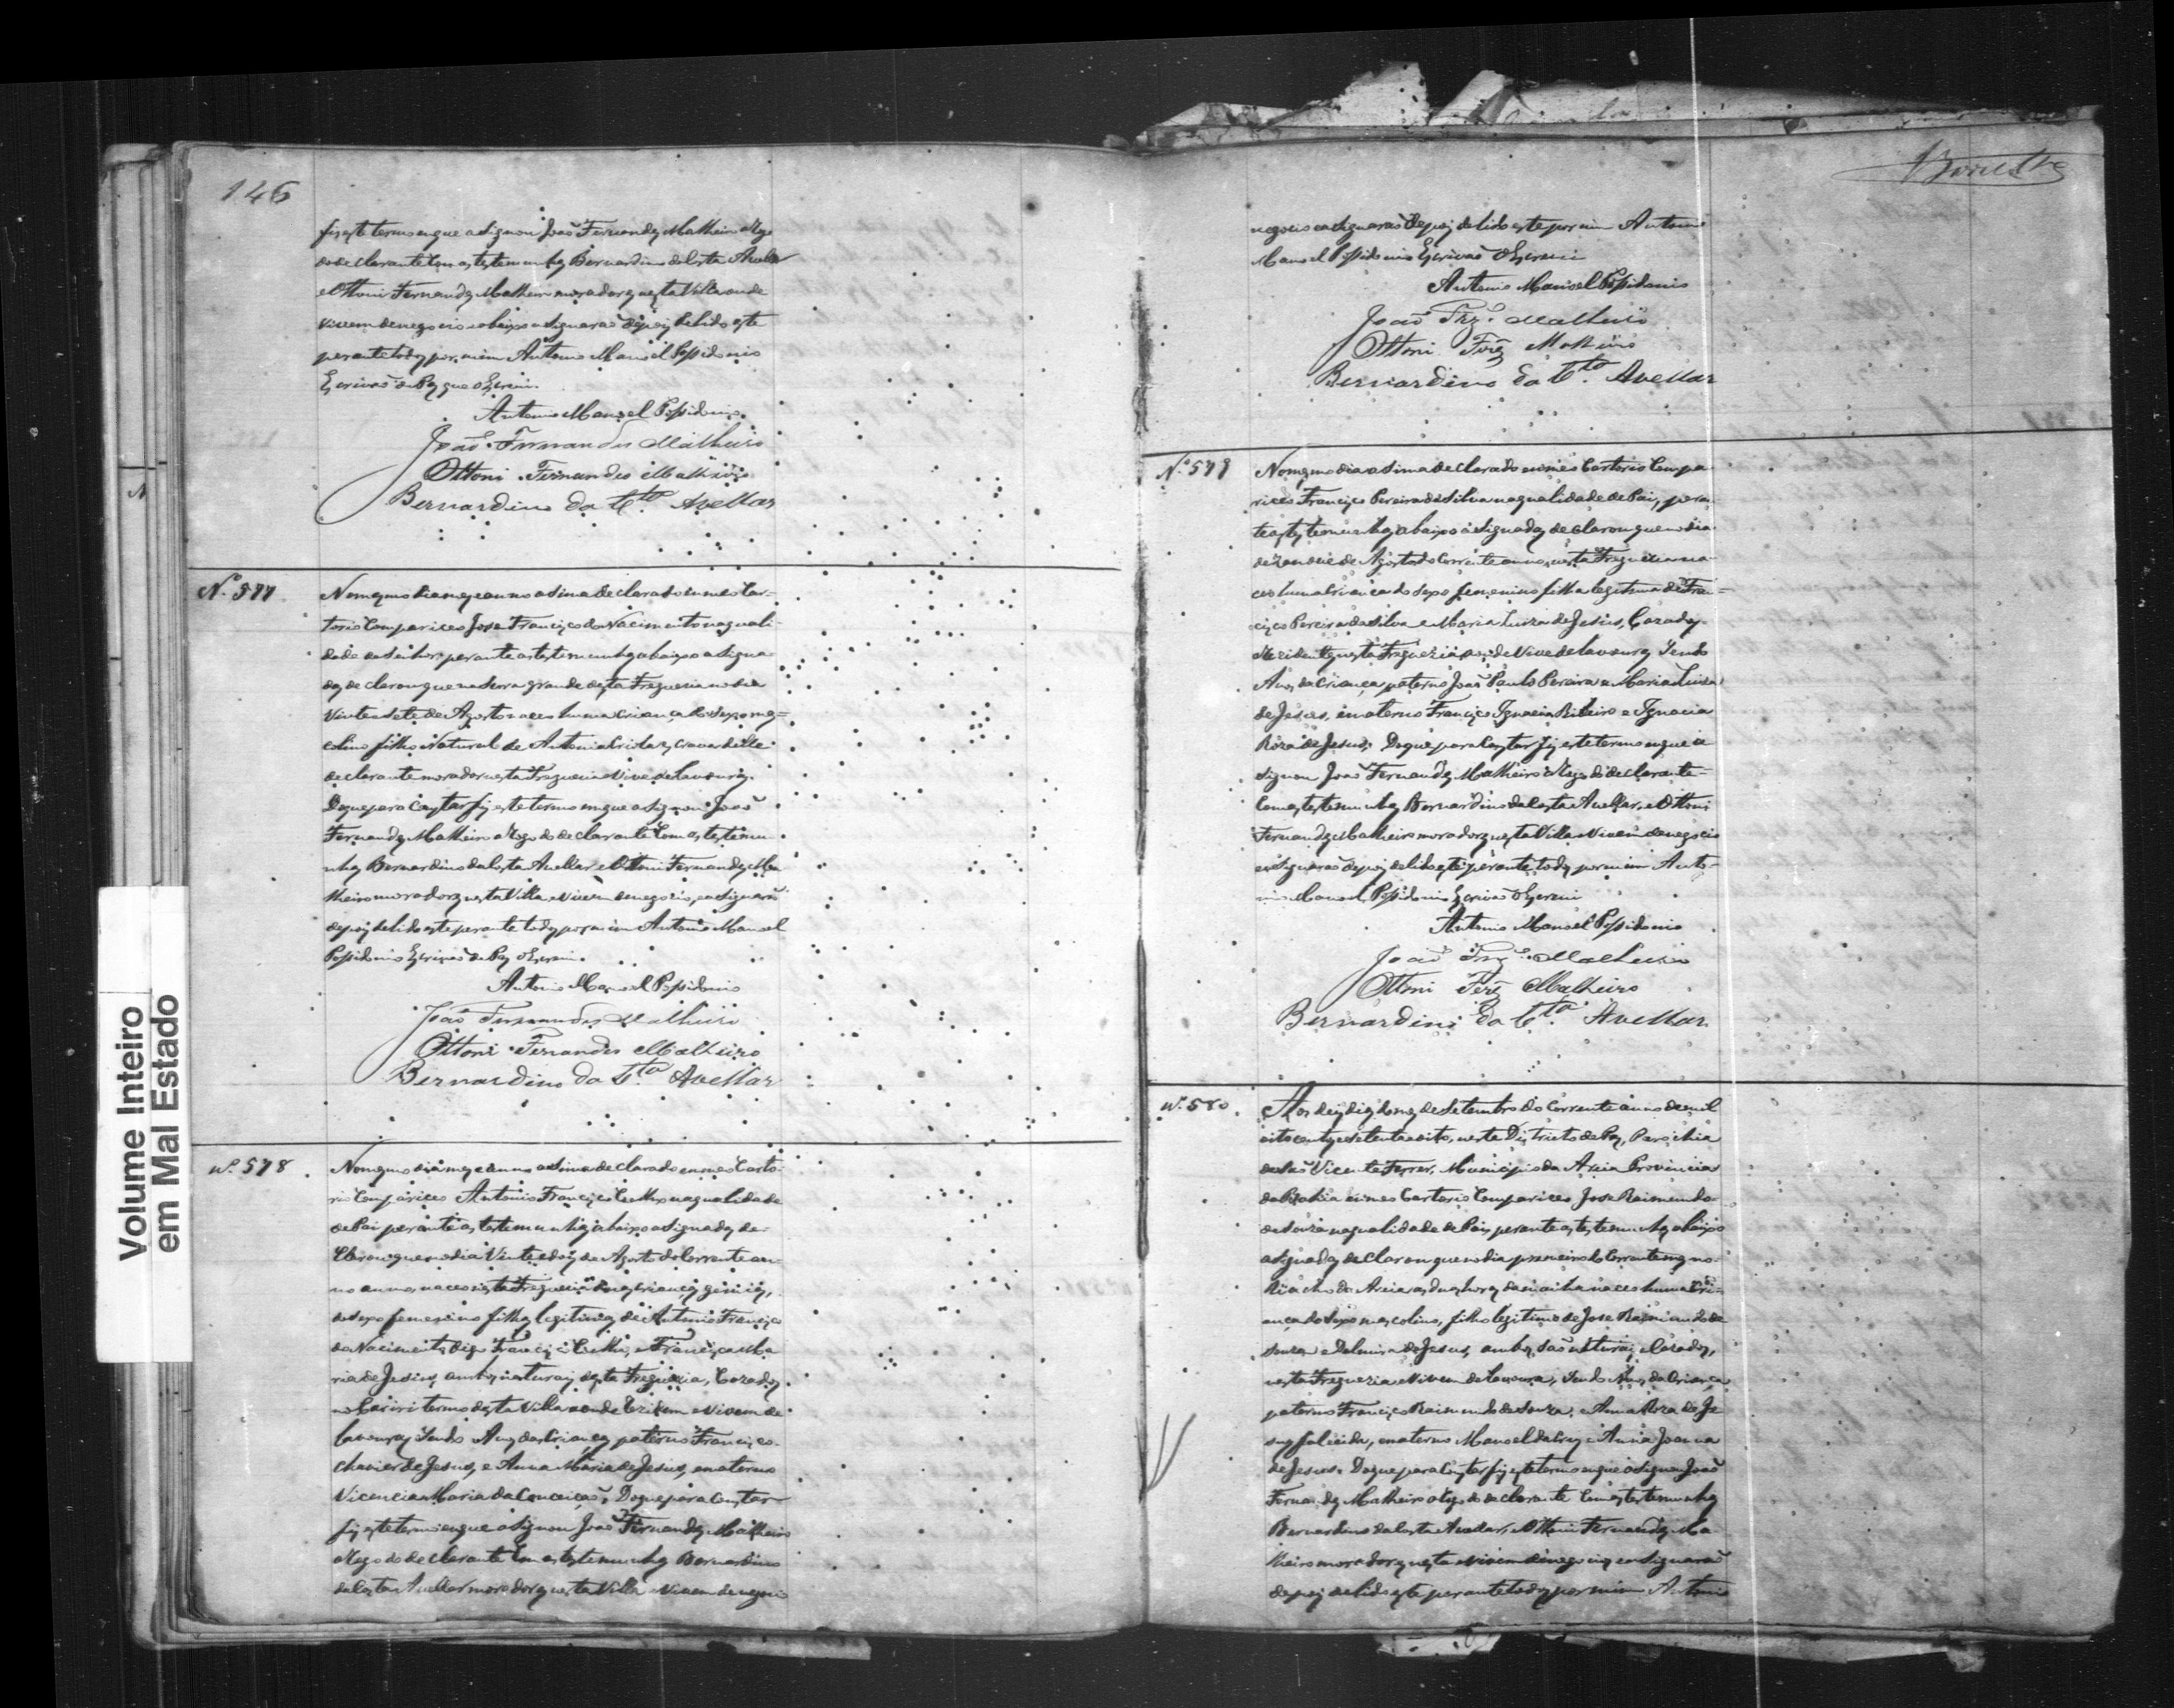 146
fiz este termo en que asignou João Fernandes Malheiro a Rogo
do declarante com as testemunhas Bernardino da Costa Avelar
e Ottoni Fernandes Malheiro moradores nesta Villa onde
vivem de negocio e abaixo asignarão depois de lido este
perante todos por mim Antonio Manoel Possidonio
Escrivão de Paz que o Escrevi.
Antonio Manoel Possidonio
João Fernandes Malheiro
Ottoni Fernandes Malheiro
Bernardino da Cta Avellar
Nº 577
No mesmo dia mes e anno asima declarado en meo Car-
torio Compariceo Jose Francisco do Nacimento na quali-
dade de Senhor, perante as testemunhas abaixo asigna-
das declarou que na Serra grande desta Freguezia no dia
Vinte e Sete de Agosto naceo huma Criança do Sexo mas-
colino filho Natural de Antonia Criola escrava delle
declarante morador nesta Freguezia e Vive de Lavoura.
Do que para Constar fiz este termo en que asignou João
Fernandes Malheiro a Rogo do declarante Com as testemu-
nhas Bernardino da Costa Avellar e Ottoni Fernandes Ma-
lheiro moradores nesta Villa e vivem de negocio, e asignarão
depois de lido este perante todos por mim Antonio Manoel
Possidonio Escrivão de Paz o Escrevi.
Antonio Manoel Possidonio
João Fernandes Malheiro
Ottoni Fernandes Malheiro
Bernardino da Cta Avellar
Nº 578
No mesmo dia mes e anno asima declarado en meo Carto-
rio Compariceo Antonio Francisco na qualidade
de Pai perante as testemunhas abaixo asignadas de-
clarou que no dia Vinte e dois de Agosto do Corrente an-
no naceo nesta Freguezia duas crianças
do sexo femenino filhas legitimas de Antonio Francisco
do Nacimento e Francisca Ma-
ria de Jesus, ambos naturais desta Freguezia, Cazados
no Cariri termo desta Villa aonde e vivem de
lavouras Sendo Avos das Crianças paterno Francisco
Chavier de Jesus, e Anna Maria de Jesus, e materno
Vicencia Maria da Conceição. Do que para Constar
fiz este termo en que asignou João Fernandes Malheiro
a Rogo do declarante Com as testemunhas Bernardino
da Costa Avellar moradores nesta Villa e Vivem de negocio
negocio e asignarão depois de lido este por mim Antonio
Manoel Possidonio Escrivão o Escrevi
Antonio Manoel Possidonio
João Frz. Malheiro
Ottoni Ferz Malheiro
Bernardino da Cta Avellar
Nº 579
No mesmo dia asima declarado en meo Cartorio Compa-
riceo Francisco Pereira da Silva na qualidade de Pai, peran-
te as testemunhas abaixo asignadas declarou que no dia
de Agosto do Corrente anno nesta Freguezia na-
ceo huma Criança do Sexo femenino filha legitima de Fran-
cisco Pereira da Silva e Maria Luiza de Jesus, Cazados
Rezidentes nesta Freguezia aonde Vive de lavouras Sendo
Avos da Criança paterno João Paulo Pereira e Maria Luiza
de Jesus, e materno Francisco Ignacio Ribeiro e Ignacia
Roza de Jesus. Do que para Constar fiz este termo en que a-
signou João Fernandes Malheiro a Rogo do declarante
Com as testemunhas Bernardino da Costa Avellar, e Ottoni
Fernandes Malheiro moradores nesta Villa e Vivem de negocio
e asignarão depois de lido este perante todos por mim Anto-
nio Manoel Possidonio Escrivão o Escrevi
Antonio Manoel Possidonio
João Frz. Malheiro
Ottoni Ferz Malheiro
Bernardino da Cta Avellar
Nº 580
Aos deis dias do mes de Setembro do Corrente anno de mil
oito centos e Setenta e oito, neste Districto de Paz, Parochia
de São Vicente Ferrer, Municipio da Areia Provincia
da Bahia en meo Cartorio Compariceo Jose Raimundo
de Souza na qualidade de Pai, perante as testemunhas abaixo
asignadas declarou que no dia premeiro do Corrente mes no
Riacho da Areia as duas horas da manha naceo huma Cri-
ança do Sexo mascolino, filho legitimo de Jose Raimundo de
Souza e Delmira de Jesus, ambos são naturais e Cazados,
nesta Freguezia e Vivem de lavoura, Sendo Avos da Criança
paterno Francisco Raimundo de Souza, e Anna Roza de Je-
sus falicida, e materno Manoel da Cruz e Anna Joanna
de Jesus. Do que para Constar fiz este termo en que asignou João
Fernandes Malheiro a Rogo do declarante Com as testemunhas
Bernardino da Costa Avellar, e Ottoni Fernandes Ma-
lheiro moradores nesta e vivem de negocios e asignarão
depois de lido este perante todos por mim Antonio
Volume Inteiro
em Mal Estado